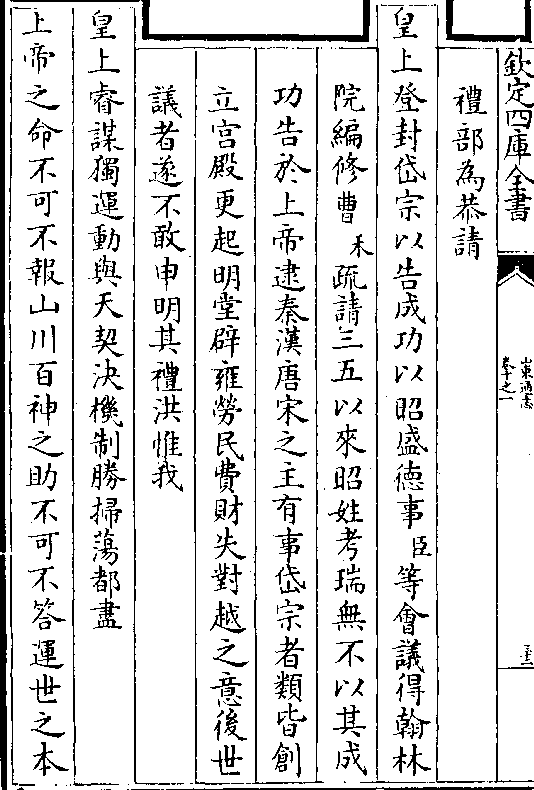 欽定四庫全書
山東通志
卷十之一
禮部為恭請
皇上登封岱宗以告成功以昭盛德事臣等會議得翰林
院編修曹禾疏請三五以來昭姓考瑞無不以其成
功告於上帝逮秦漢唐宋之主有事岱宗者類皆創
立宫殿更起明堂辟雍勞民費財失對越之意後世
議者遂不敢申明其禮洪惟我
皇上睿謀獨運動與天契決機制勝掃蕩都盡
上帝之命不可不報山川百神之助不可不答運世之本